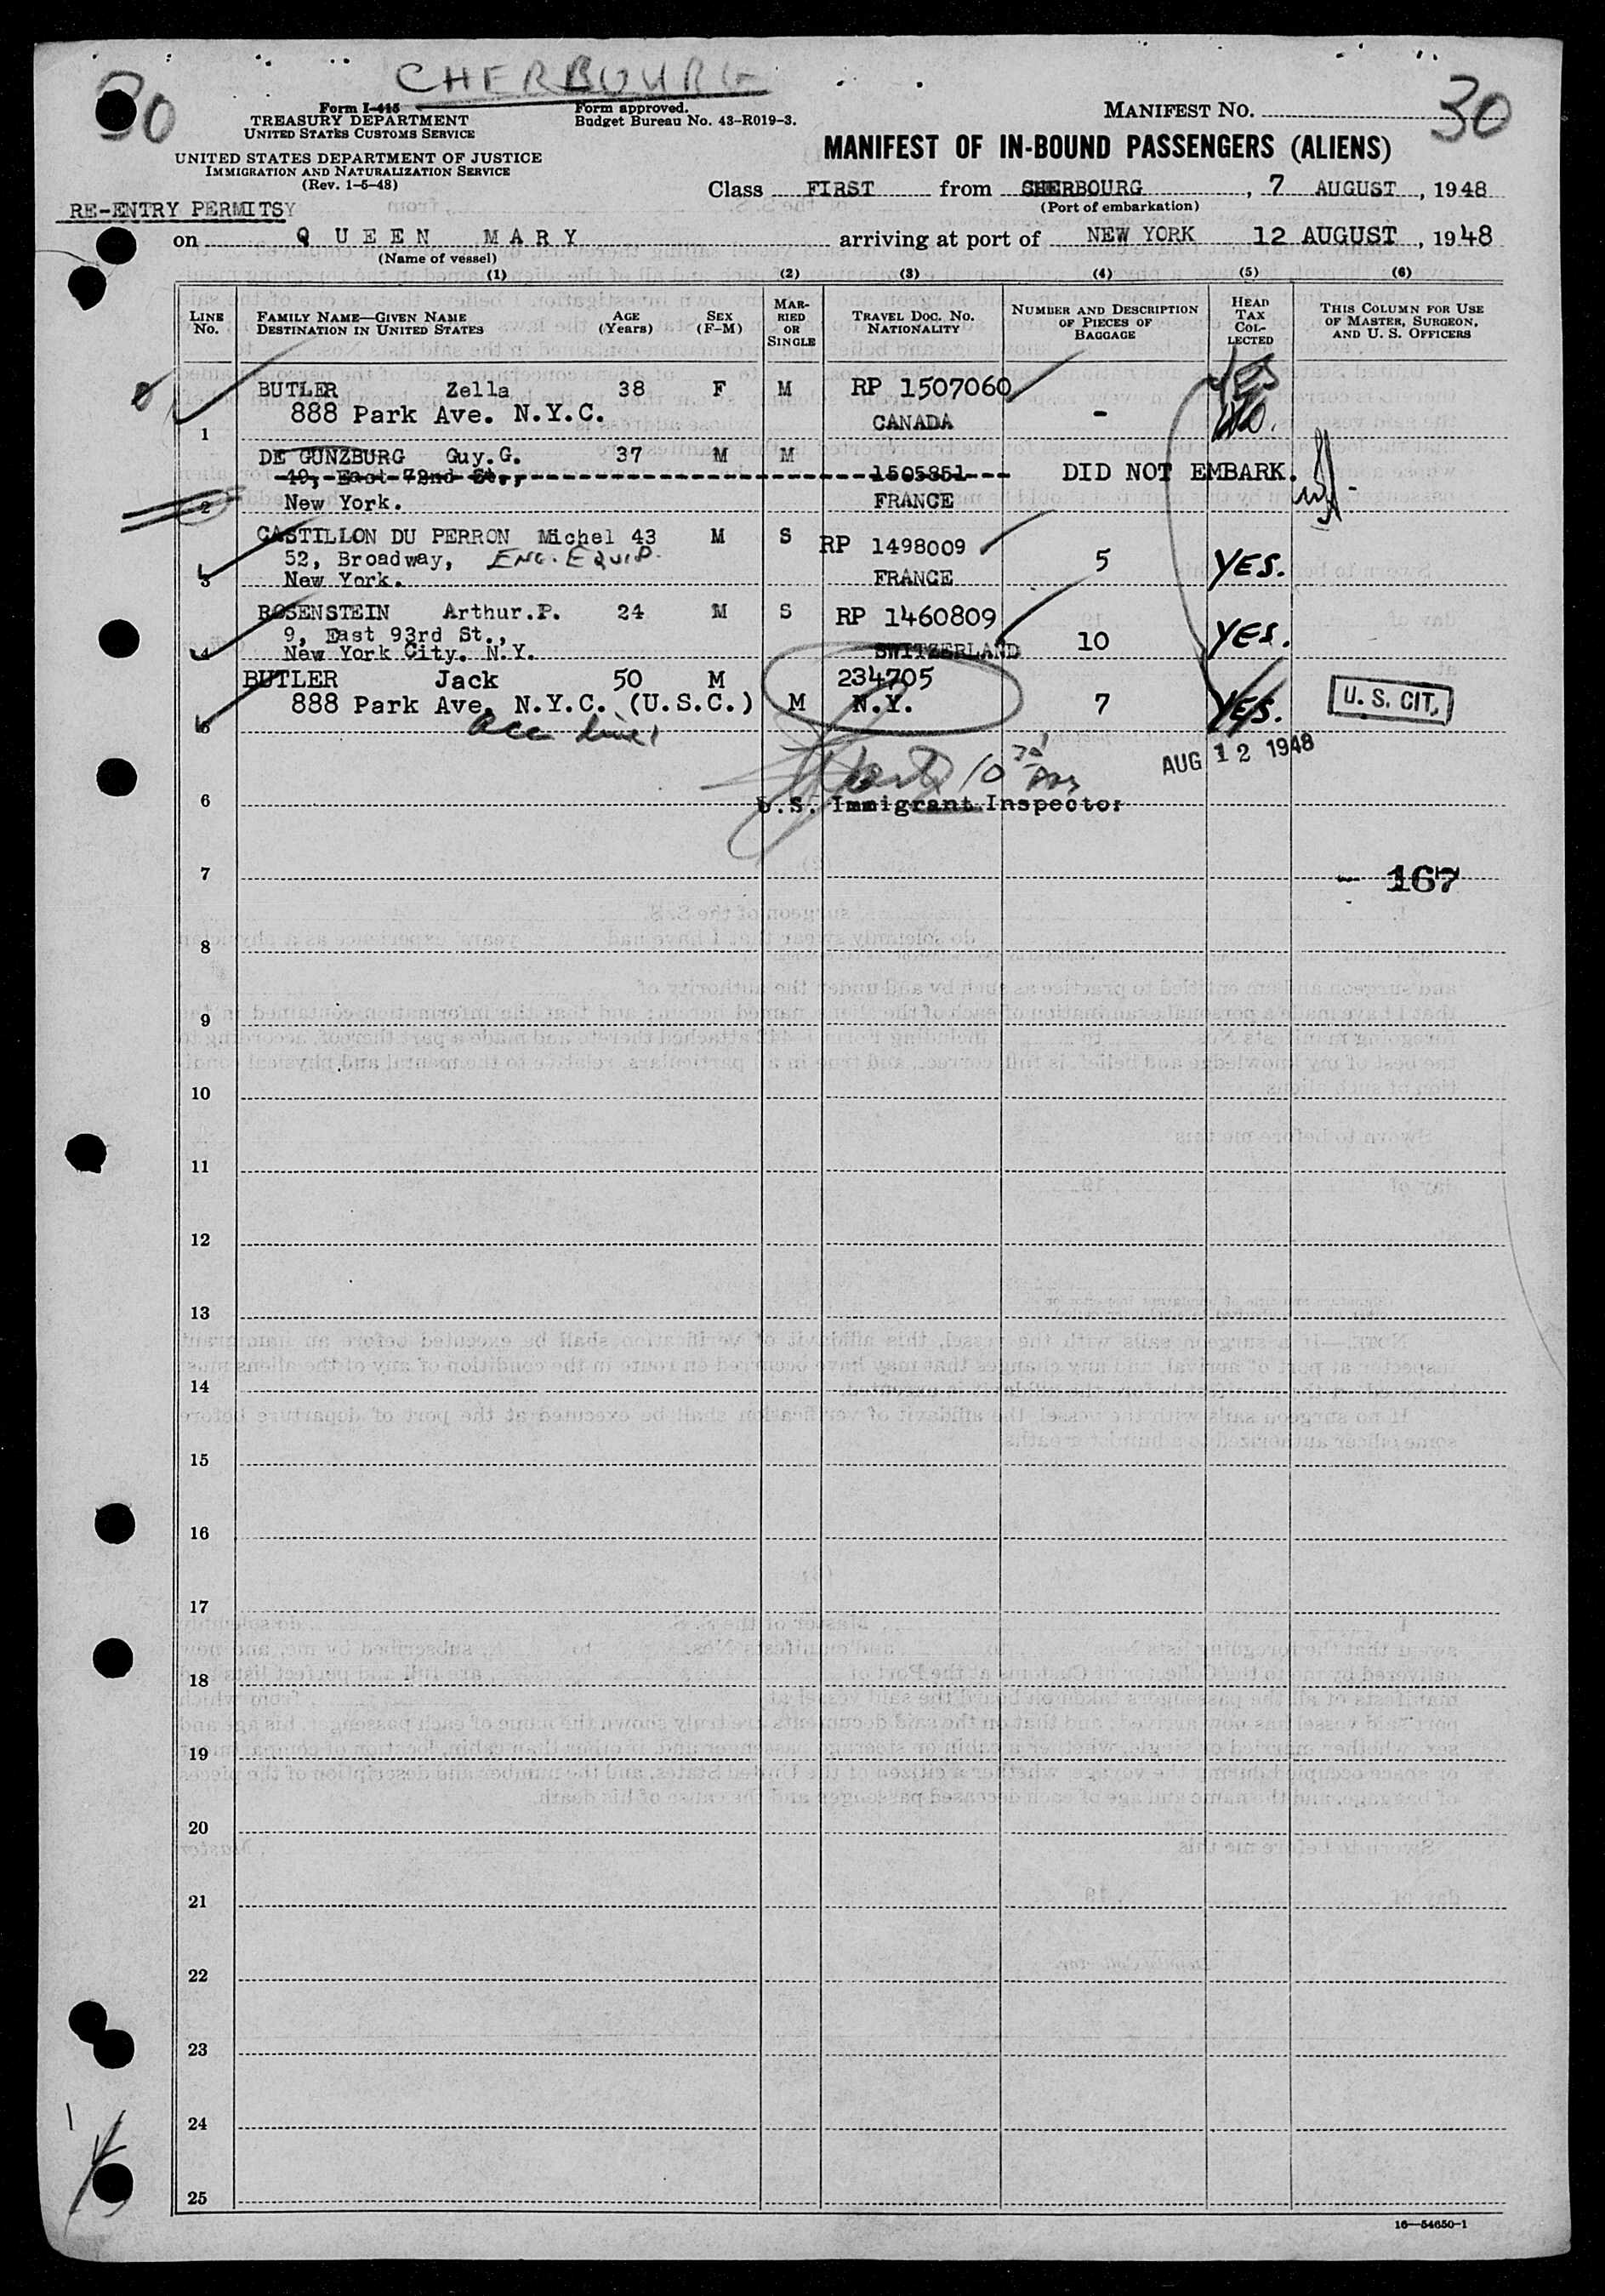 CHERBOURG
30
Form I-415
TREASURY DEPARTMENT
UNITED STATES CUSTOMS SERVICE
UNITED STATES DEPARTMENT OF JUSTICE
IMMIGRATION AND NATURALIZATION SERVICE
(Rev. 1-5-48)
Form approved.
Budget Bureau No. 43-R019-3.
MANIFEST NO. 30
MANIFEST OF IN-BOUND PASSENGERS (ALIENS)
Class FIRST from CHERBOURG, 7 AUGUST, 1948
(Port of embarkation)
RE-ENTRY PERMITS
on QUEEN MARY arriving at port of NEW YORK 12 AUGUST, 1948
(Name of vessel)
(1) (2) (3) (4) (5) (6)
LINE No. FAMILY NAME—GIVEN NAME DESTINATION IN UNITED STATES AGE (Years) SEX (F-M) MARRIED OR SINGLE TRAVEL DOC. NO. NATIONALITY NUMBER AND DESCRIPTION OF PIECES OF BAGGAGE HEAD TAX COLLECTED THIS COLUMN FOR USE OF MASTER, SURGEON, AND U. S. OFFICERS
BUTLER Zella 38 F M RP 1507060 YES
888 Park Ave. N.Y.C. CANADA -
1
DE GUNZBURG Guy.G. 37 M M
49, East 72nd St., 1505851 DID NOT EMBARK.
2 New York. FRANCE
CASTILLON DU PERRON Michel 43 M S RP 1498009
52, Broadway, ENG. EQUIP. 5 YES.
3 New York. FRANCE
ROSENSTEIN Arthur.P. 24 M S RP 1460809
9, East 93rd St., 10 YES.
4 New York City. N.Y. SWITZERLAND
BUTLER Jack 50 M 234705
888 Park Ave. N.Y.C. (U.S.C.) M N.Y. 7 YES. U. S. CIT.
5
AUG 12 1948
10 30 AM
6 U.S. Immigrant Inspector
7 - 167
8
9
10
11
12
13
14
15
16
17
18
19
20
21
22
23
24
25
16—54650-1